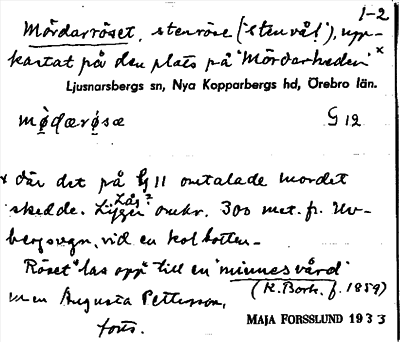 1-2
Mördarröset, stenröse ("stenvål"), upp-
kastat på den plats på "Mördarheden" x
Ljusnarsbergs sn, Nya Kopparbergs hd, Örebro län.
G 12
x där det på G 11 omtalade mordet
skedde. Ligger omkr. 300 met. fr. Uv-
bergsvägn, vid en kolbotten.
Röset "las opp" till en "minnesvård"
(K. Bork. f. 1859)
men Augusta Pettersson,
forts.
MAJA FORSSLUND 1933